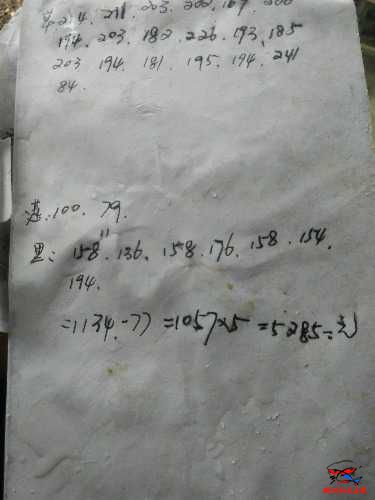 214. 211. 203. 202. 167. 200
194. 203. 182. 226. 193. 185
203 194. 181. 195. 194. 241
84.
100. 79.
黑: 158" 136. 158. 176. 158. 154.
194.
=1134.-77 =1057×5 =5285元